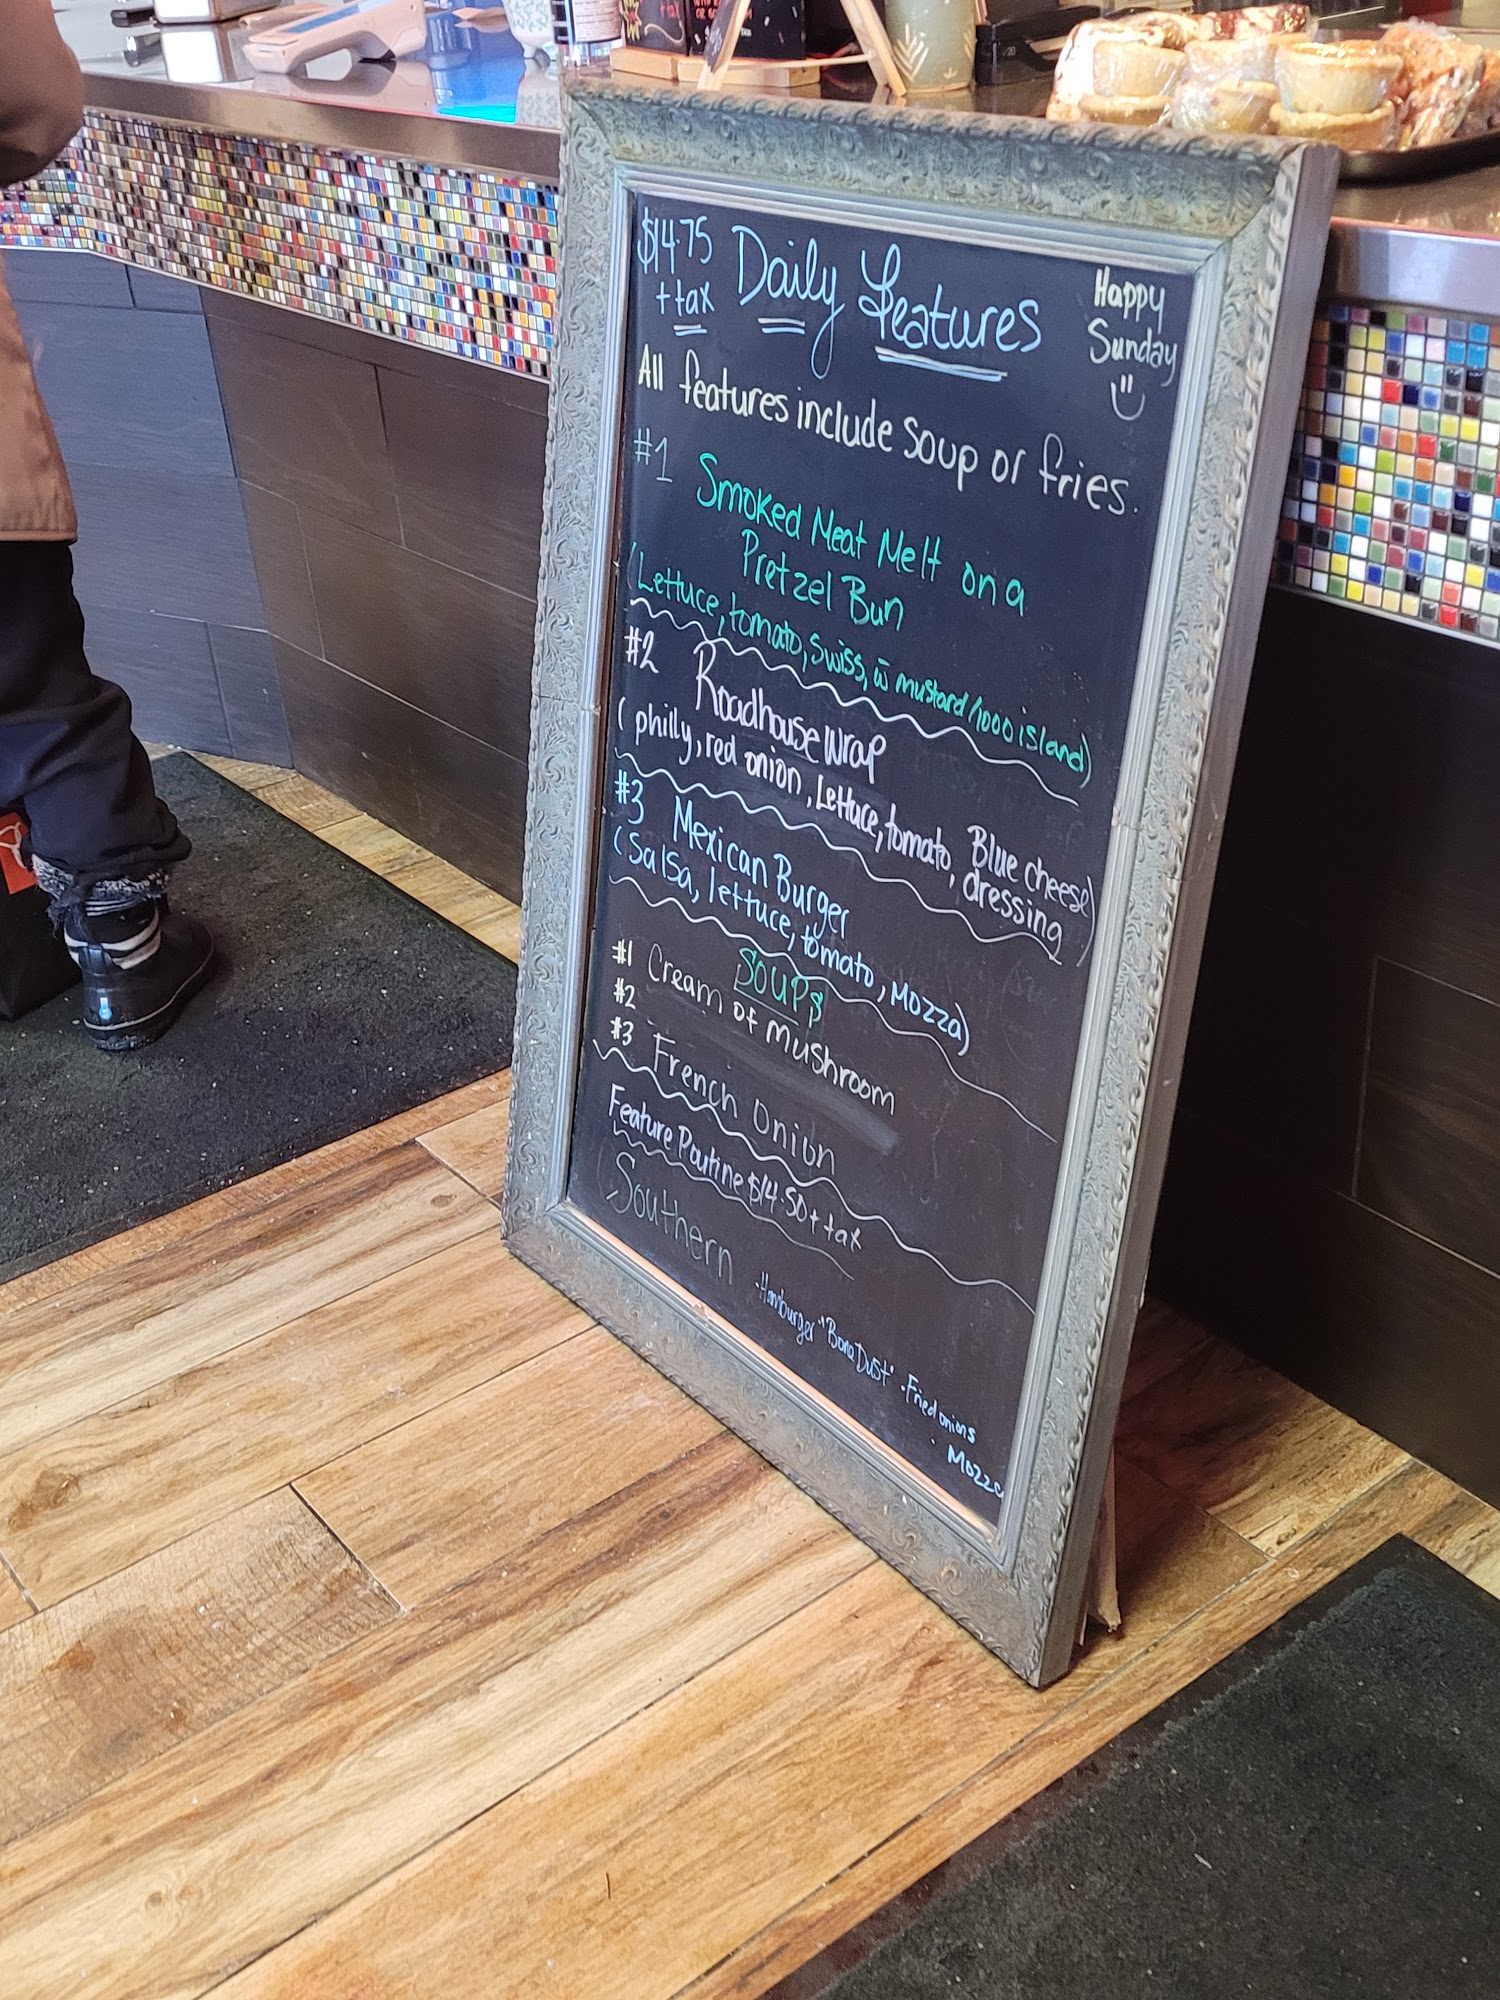 $14.75 Daily Features Happy
+ tax Sunday
All features include soup or fries.
#1 Smoked Meat Melt on a
Pretzel Bun
(Lettuce, tomato, swiss, w̄ mustard/1000 island)
#2 Roadhouse Wrap
(philly, red onion, Lettuce, tomato, Blue cheese)
dressing
#3 Mexican Burger
(Salsa, lettuce, tomato, Mozza)
SOUPS
#1 Cream of Mushroom
#2
#3 French Onion
Feature Poutine $14.50 + tax
Southern
-Hamburger -"Bone Dust" -Fried onions
- Mozza